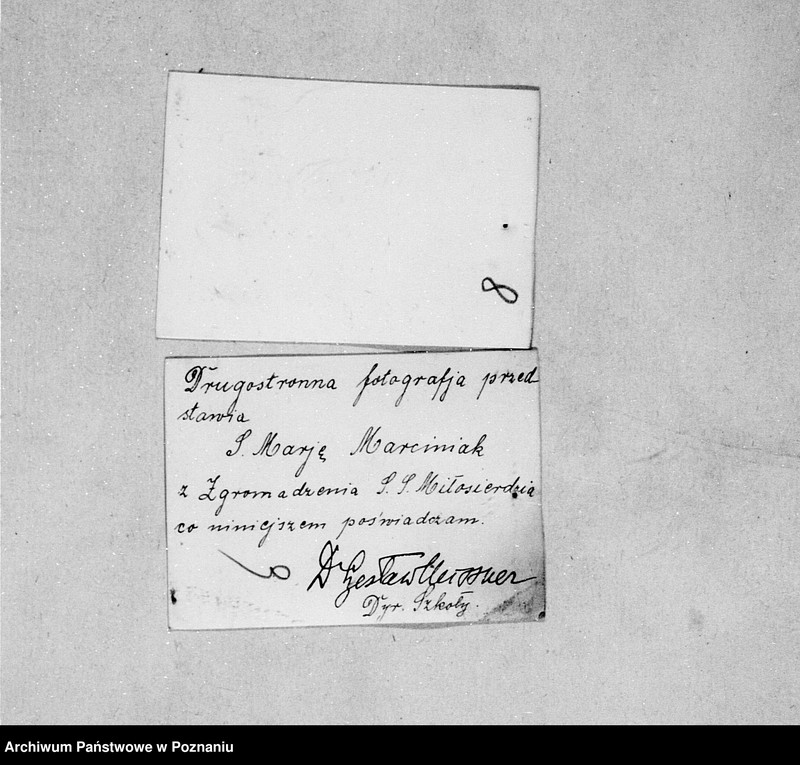 8
Drugostronna fotografja przed
stawia
S. Marję Marciniak
z Zgromadzenia S. S. Miłosierdzia
co niniejszem poświadczam.
Dr Czesław Meissner
Dyr. Szkoły.
Archiwum Państwowe w Poznaniu